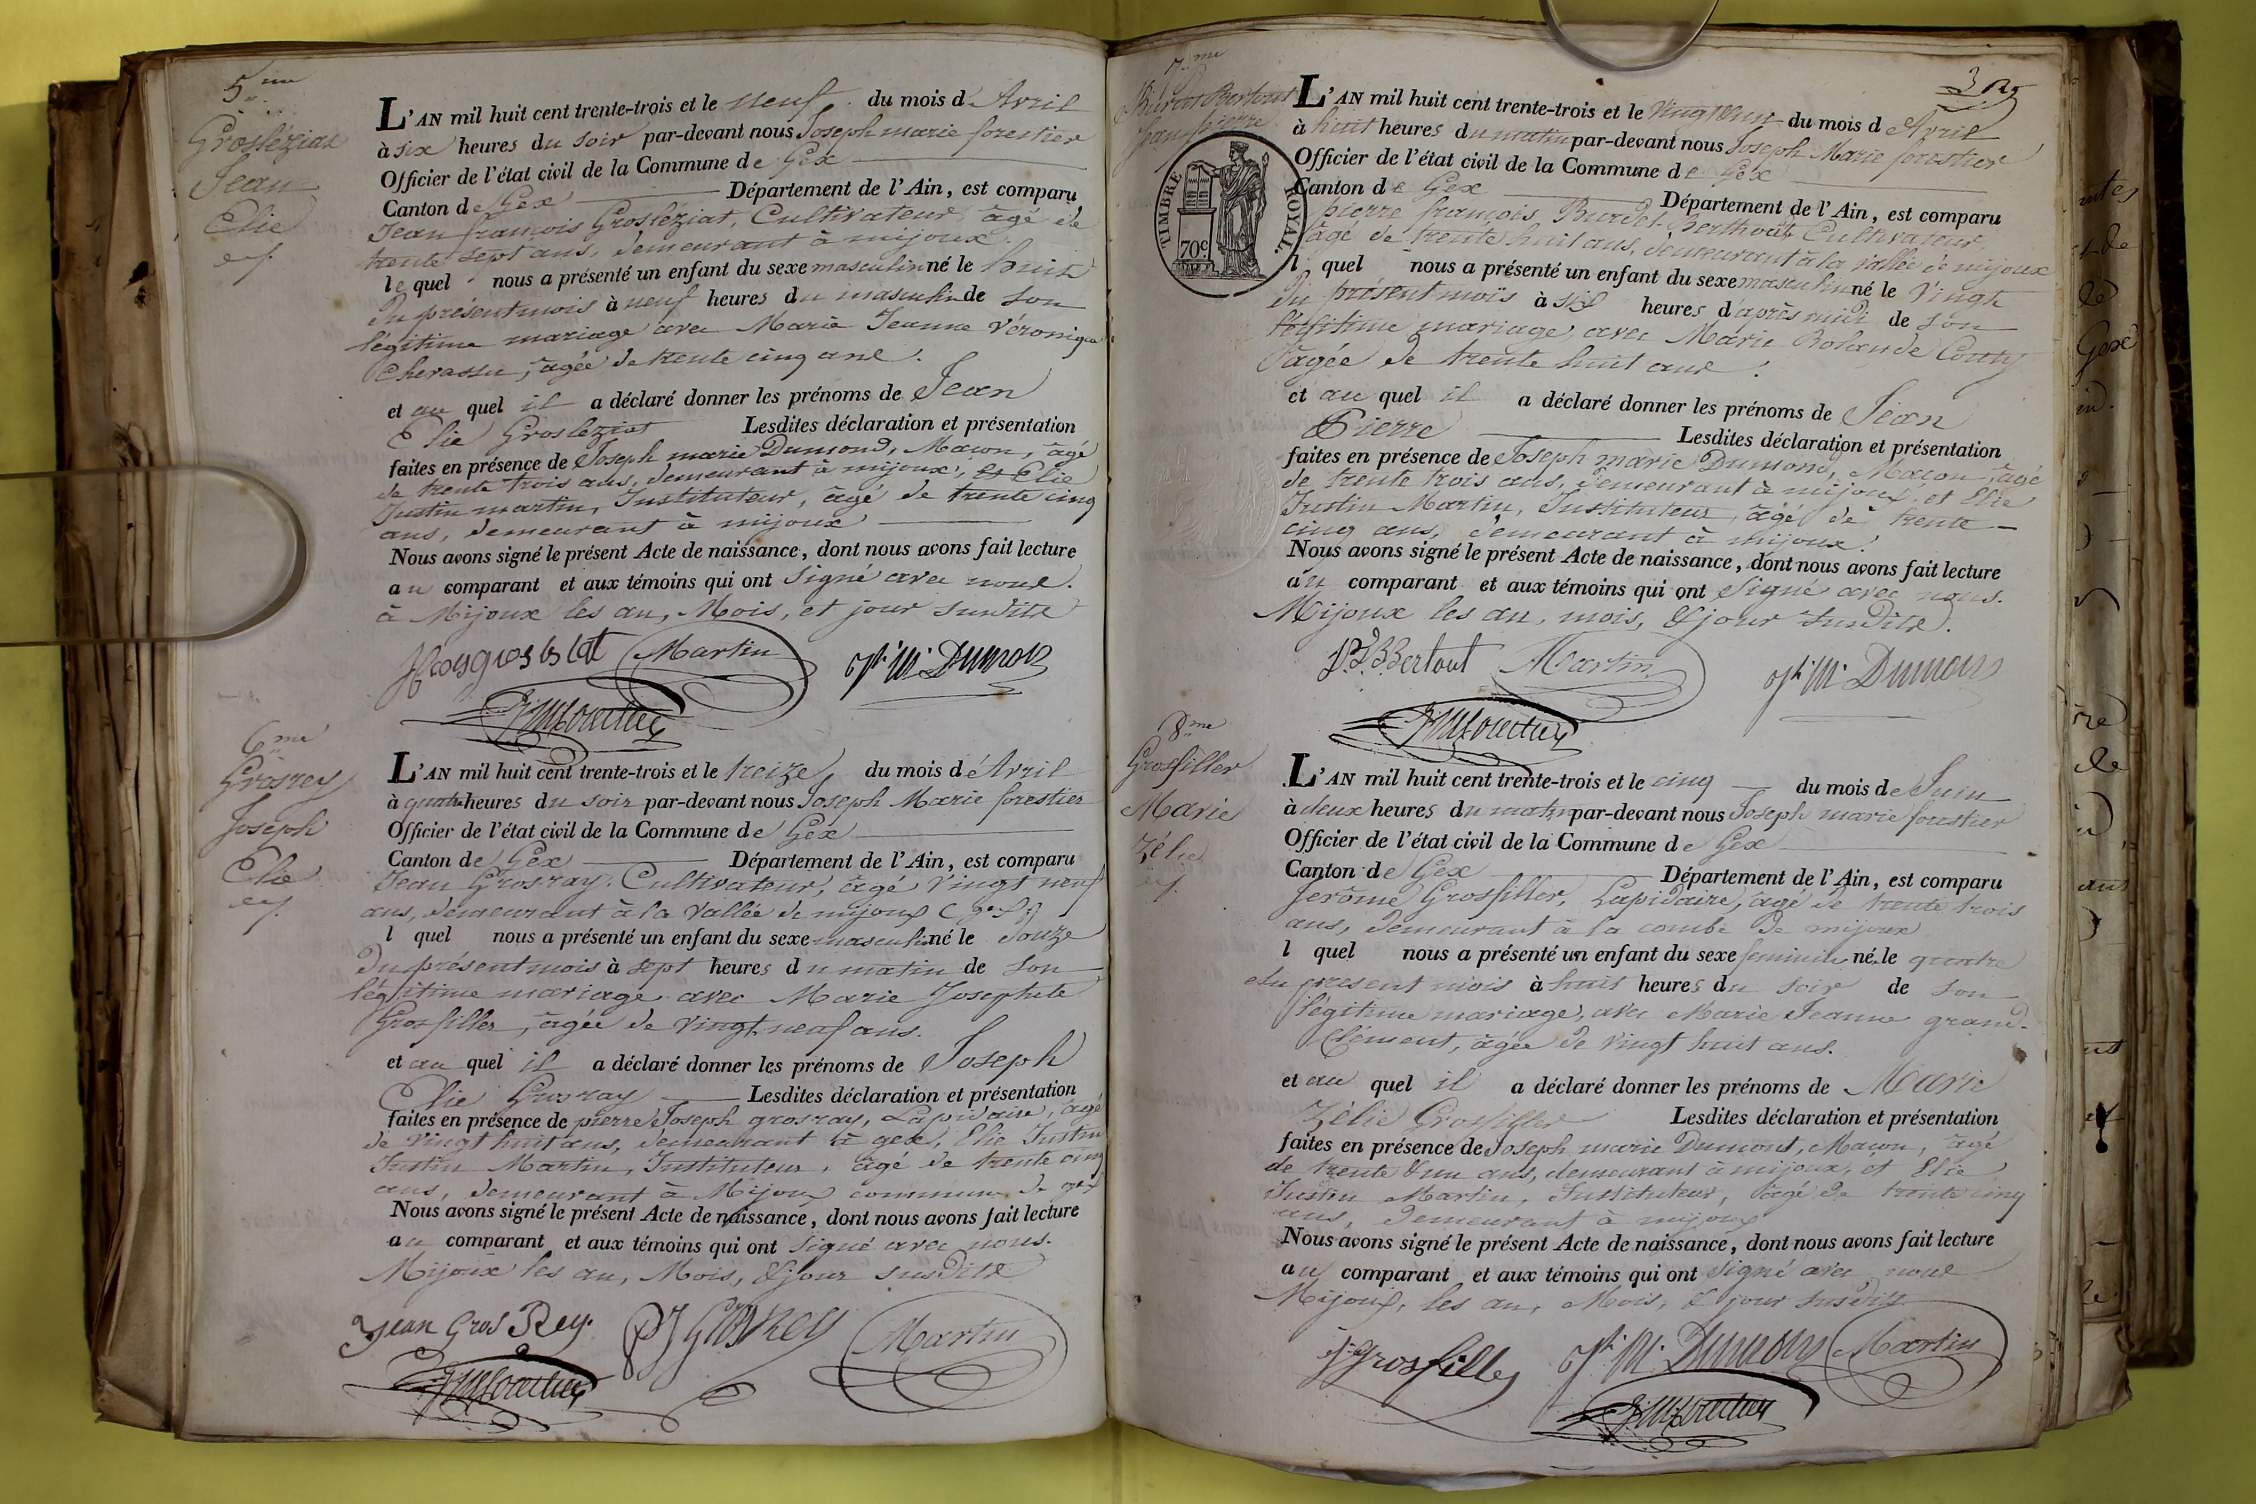 5me
Grosléziat
Jean
Elie
L'AN mil huit cent trente-trois et le neuf, du mois d'Avril
à six heures du soir par-devant nous Joseph marie forestier
Officier de l'état civil de la Commune de Gex
Canton de Gex Département de l'Ain, est comparu
Jean françois Grosléziat, Cultivateur, âgé de
trente sept ans, demeurant à mijoux.
lequel nous a présenté un enfant du sexe masculin né le huit
du présent mois à neuf heures du masculin de son
légitime mariage avec Marie Jeanne Véronique
âgée de trente cinq ans.
et au quel il a déclaré donner les prénoms de Jean
Elie Grosleziat Lesdites déclaration et présentation
faites en présence de Joseph marie Dumond, Macon, âgé
de trente trois ans, demeurant à mijoux, et Elie
Justin martin, Instituteur, âgé de trente cinq
ans, demeurant à mijoux
Nous avons signé le présent Acte de naissance, dont nous avons fait lecture
au comparant et aux témoins qui ont signé avec nous.
à Mijoux les an, Mois, et jour susdits
Martin Jh M. Dumond
6me
Grosrey
Joseph
Elie
L'AN mil huit cent trente-trois et le treize, du mois d'Avril
à quatre heures du soir par-devant nous Joseph Marie forestier
Officier de l'état civil de la Commune de Gex
Canton de Gex Département de l'Ain, est comparu
Jean Grosray, Cultivateur, âgé vingt neuf
ans, demeurant à la vallée de mijoux (gex)
l quel nous a présenté un enfant du sexe masculin né le douze
du présent mois à sept heures du matin de son
légitime mariage avec Marie Josephte
Grosfiller, âgée de vingt neuf ans.
et au quel il a déclaré donner les prénoms de Joseph
Elie Grosray Lesdites déclaration et présentation
faites en présence de pierre Joseph grosray, Lapidaire, âgé
de vingt huit ans, demeurant à gex, Elie Justin
Justin Martin, Instituteur, âgé de trente cinq
ans, demeurant à Mijoux commune de gex
Nous avons signé le présent Acte de naissance, dont nous avons fait lecture
au comparant et aux témoins qui ont signé avec nous.
Mijoux les an, Mois, & jour susdits
Jean Gros Rey. PJ GrosRey Martin
7me
Burdet Bertout
Jean pierre
TIMBRE ROYAL.
70c
L'AN mil huit cent trente-trois et le vingt un du mois d'Avril
à huit heures du matin par-devant nous Joseph Marie forestier
Officier de l'état civil de la Commune de Gex
Canton de Gex Département de l'Ain, est comparu
pierre françois Burdet-Berthout Cultivateur,
âgé de trente huit ans, demeurant à la vallée de mijoux
l quel nous a présenté un enfant du sexe masculin né le vingt
du présent mois à six heures d'après midi de son
légitime mariage, avec Marie Rolande
âgée de trente huit ans.
et au quel il a déclaré donner les prénoms de Jean
Pierre Lesdites déclaration et présentation
faites en présence de Joseph marie Dumond, Macon, âgé
de trente trois ans, demeurant à mijoux, et Elie
Justin Martin, Instituteur, âgé de trente
cinq ans, demeurant à mijoux.
Nous avons signé le présent Acte de naissance, dont nous avons fait lecture
au comparant et aux témoins qui ont signé avec nous.
Mijoux les an, mois, & jour susdits.
Bertout Martin Jh M. Dumond
8me
Grosfiller
Marie
Zélie
L'AN mil huit cent trente-trois et le cinq du mois de Juin
à deux heures du matin par-devant nous Joseph marie forestier
Officier de l'état civil de la Commune de Gex
Canton de Gex Département de l'Ain, est comparu
Jerôme Grosfiller, Lapidaire, âgé de trente trois
ans, demeurant à la combe de mijoux
l quel nous a présenté un enfant du sexe feminin né le quatre
du présent mois à huit heures du soir de son
légitime mariage, avec Marie Jeanne grand-
Clément, âgée de vingt huit ans.
et au quel il a déclaré donner les prénoms de Marie
Zélie Grosfiller Lesdites déclaration et présentation
faites en présence de Joseph marie Dumont, Macon, âgé
de trente & un ans, demeurant à mijoux, et Elie
Justin Martin, Instituteur, âgé de trente cinq
ans, demeurant à mijoux
Nous avons signé le présent Acte de naissance, dont nous avons fait lecture
au comparant et aux témoins qui ont signé avec nous
Mijoux, les an, Mois, & jour susdits
Grosfiller Jh M. Dumond Martin